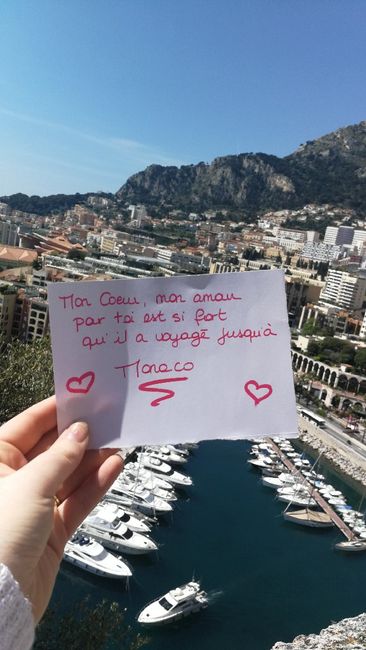 Mon Coeur, mon amour
par toi est si fort
qu'il a voyagé jusqu'à
Monaco